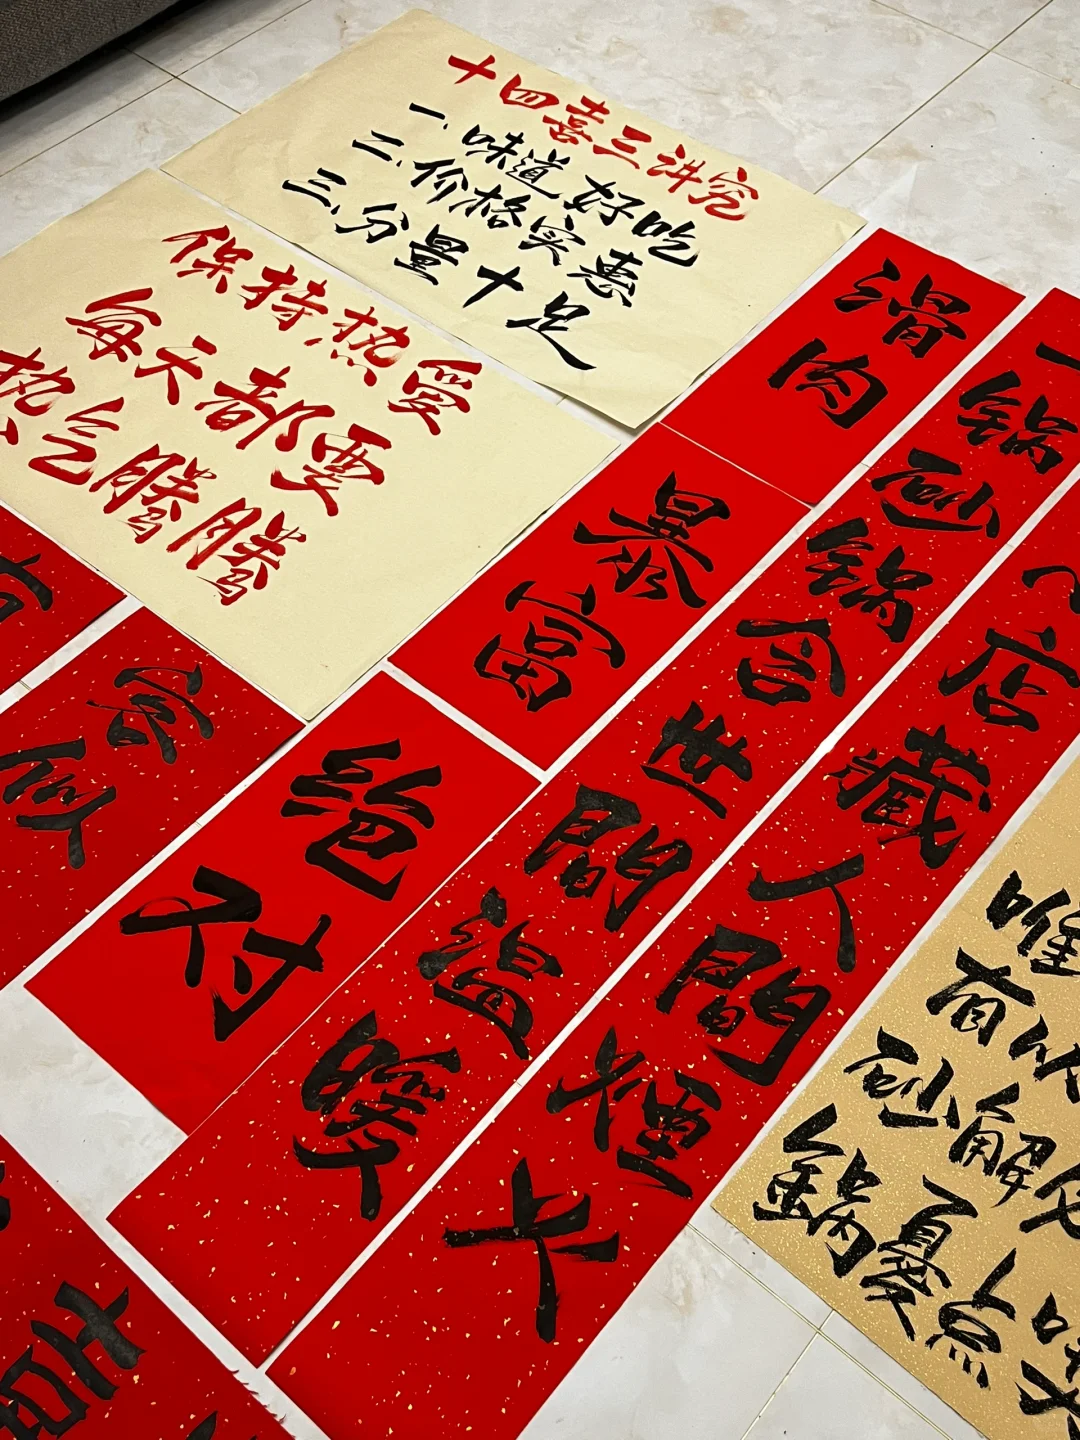 十四喜三讲究
一、味道好吃
二、价格实惠
三、分量十足
保持热爱
每天都要
热气腾腾
滑肉
暴富
绝对
一锅砂锅含世間温暖
小店藏人間煙火
唯有
砂锅
解
憂
点